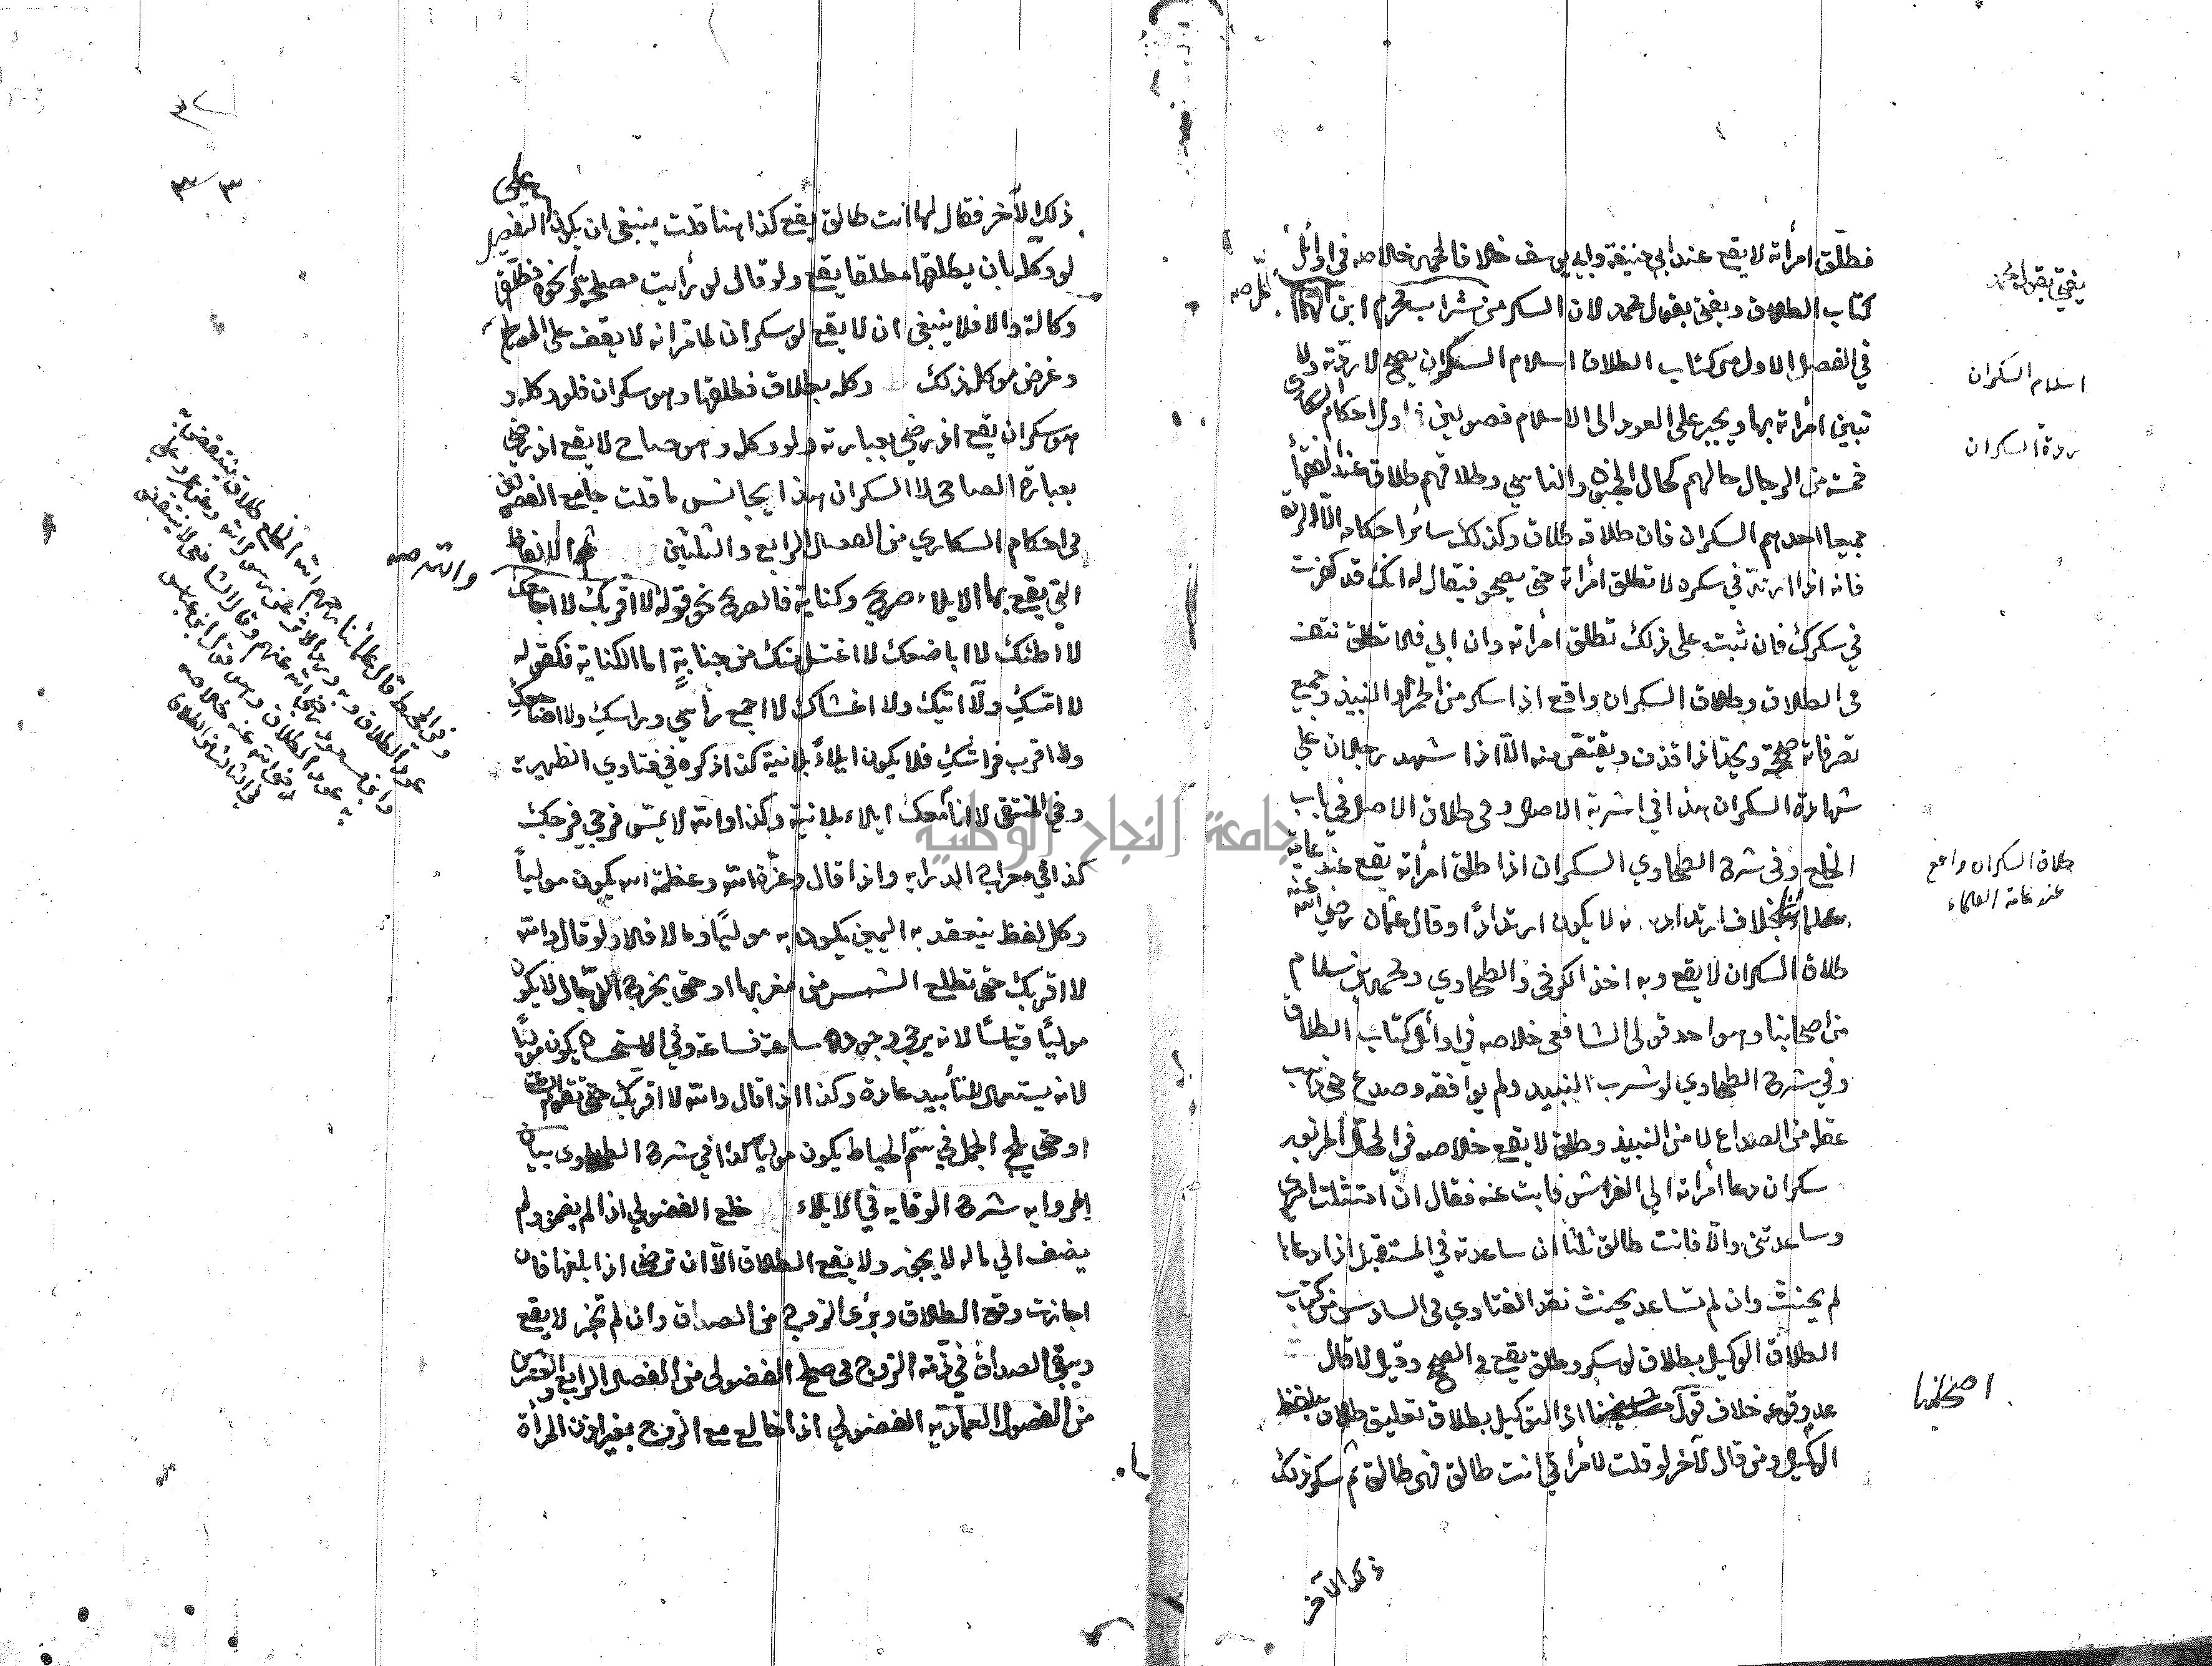 فطلّق امرأته لا يقع عند ابي حنيفة وابي يوسف خلافا لمحمد خلاصه في اوائل
كتاب الطلاق ويفتى بقول محمد لان السكر من شراب محرم ابن الهمام
في الفصل الاول من كتاب الطلاق اسلام السكران يصح لا ردّته ولا
تبين امرأته بها ويجبر على العود الى الاسلام فصولين في اول احكام السكارى
خمسة من الرجال حالهم كحال المجنون والناسي وطلاقهم طلاق عند الفقهاء
جميعا احدهم السكران فان طلاقه طلاق وكذلك سائر احكامه الّا الردة
فانه اذا ارتدّ في سكره لا تطلق امرأته حتى يصحو فيقال له انك قد كفرت
في سكرك فان ثبت على ذلك تطلق امرأته وان ابي فلا تطلق نتف
في الطلاق وطلاق السكران واقع اذا سكر من الخمر او النبيذ وجميع
تصرفاته صحيحة ويحدّ اذا قذف ويقتص منه الّا اذا شهد رجلان علي
شهادة السكران هذا في اشربة الاصل وفي طلاق الاصل في باب
الخلع وفي شرح الطحاوي السكران اذا طلق امرأته يقع عند عامّة
علمائنا بخلاف ارتداده لا يكون ارتدادًا وقال عثمان رضي الله عنه
طلاق السكران لا يقع وبه اخذ الكرخي والطحاوي ومحمد بن سلام
من اصحابنا وهو احد قولي الشافعي خلاصه في اوائل كتاب الطلاق
وفي شرح الطحاوي لو شرب النبيذ ولم يوافقه وصدع حتى ذهب
عقله من الصداع لا من النبيذ وطلق لا يقع خلاصه في المحل المزبور
سكران دعا امرأته الي الفراش فابت عنه فقال ان امتثلت امري
وساعدتني والّا فانت طالق ثلثا ان ساعدته في المستقبل اذا دعاها
لم يحنث وان لم تساعد يحنث نقد الفتاوي في السادس من كتاب
الطلاق الوكيل بطلاق لو سكر وطلق يقع في الصحيح وقيل لا قال
عدم وقوعه خلاف قول اذ التوكيل بطلاق تعليق طلاق بلفظ
الوكيل ومن قال لآخر لو قلت لامرأتي انت طالق فهي طالق ثم سكر ذلك
ذلك الآخر
يفتى بقول محمد
اسلام السكران
ردة السكران
طلاق السكران واقع
عند عامة العلماء
اصحابنا
ذلك الآخر فقال لها انت طالق يقع كذا هنا قلت ينبغي ان يكون علي التفصيل
لو وكله بان يطلقها مطلقا يقع ولو قال لو رأيت مصلحة او نحوه فطلّقها
وكالة والا فلا ينبغي ان لا يقع لو سكران لما مر انه لا يقف على المصالح
وغرض موكل ذلك وكله بطلاق فطلقها وهو سكران فلو وكله و
هو سكران يقع اذ رضي بعبارته ولو وكل وهو صاح لا يقع اذ رضي
بعبارة الصاحي لا السكران هذا يجانس ما قلت جامع الفصولين
في احكام السكاري من الفصل الرابع والثلثين ثم الالفاظ
التي يقع بها الايلاء صريح وكناية فالصريح نحو قوله لا اقربك لا اجامعك
لا اطئك لا اباضعك لا اغتسل منك من جنابةٍ اما الكناية فكقوله
لا امسّكِ ولا آتيك ولا اغشاك لا اجمع رأسي وراسكِ ولا اضاجعكِ
ولا اقرب فراشكِ فلا يكون ايلاءً بلا نية كذا ذكره في فتاوي الظهيرية
وفي المنتقى لا انام معك ايلاء بلا نية وكذا والله لا يمسّ فرجي فرجك
كذا في معراج الدرايه واذا قال وعزّة الله وعظمة الله يكون موليًا
وكل لفظ ينعقد به اليمين يكون به موليًا وما لا فلا ولو قال والله
لا اقربك حتى تطلع الشمس من مغربها او حتى يخرج الدجّال لا يكون
موليًا قياسًا لانه يرجى وجوده ساعة فساعة وفي الاستحسان يكون موليًا
لانه يستعمل للتأبيد عادة وكذا اذا قال والله لا اقربك حتى تقوم الساعة
او حتى يلج الجمل في سمّ الخياط يكون موليًا كذا في شرح الطحاوى بيان
الروايه شرح الوقايه في الايلاء خلع الفضولي اذا لم يضمن ولم
يضف الي ماله لا يجوز ولا يقع الطلاق الّا ان ترضى اذا بلغها فان
اجازت وقع الطلاق وبرئ الزوج من الصداق وان لم تجز لا يقع
ويبقى الصداق في ذمّة الزوج في صلح الفضولى من الفصل الرابع والعشرين
من الفصول العماديه الفضولي اذا خالع مع الزوج بغير اذن المرأة
والله صه
جامعة النجاح الوطنية